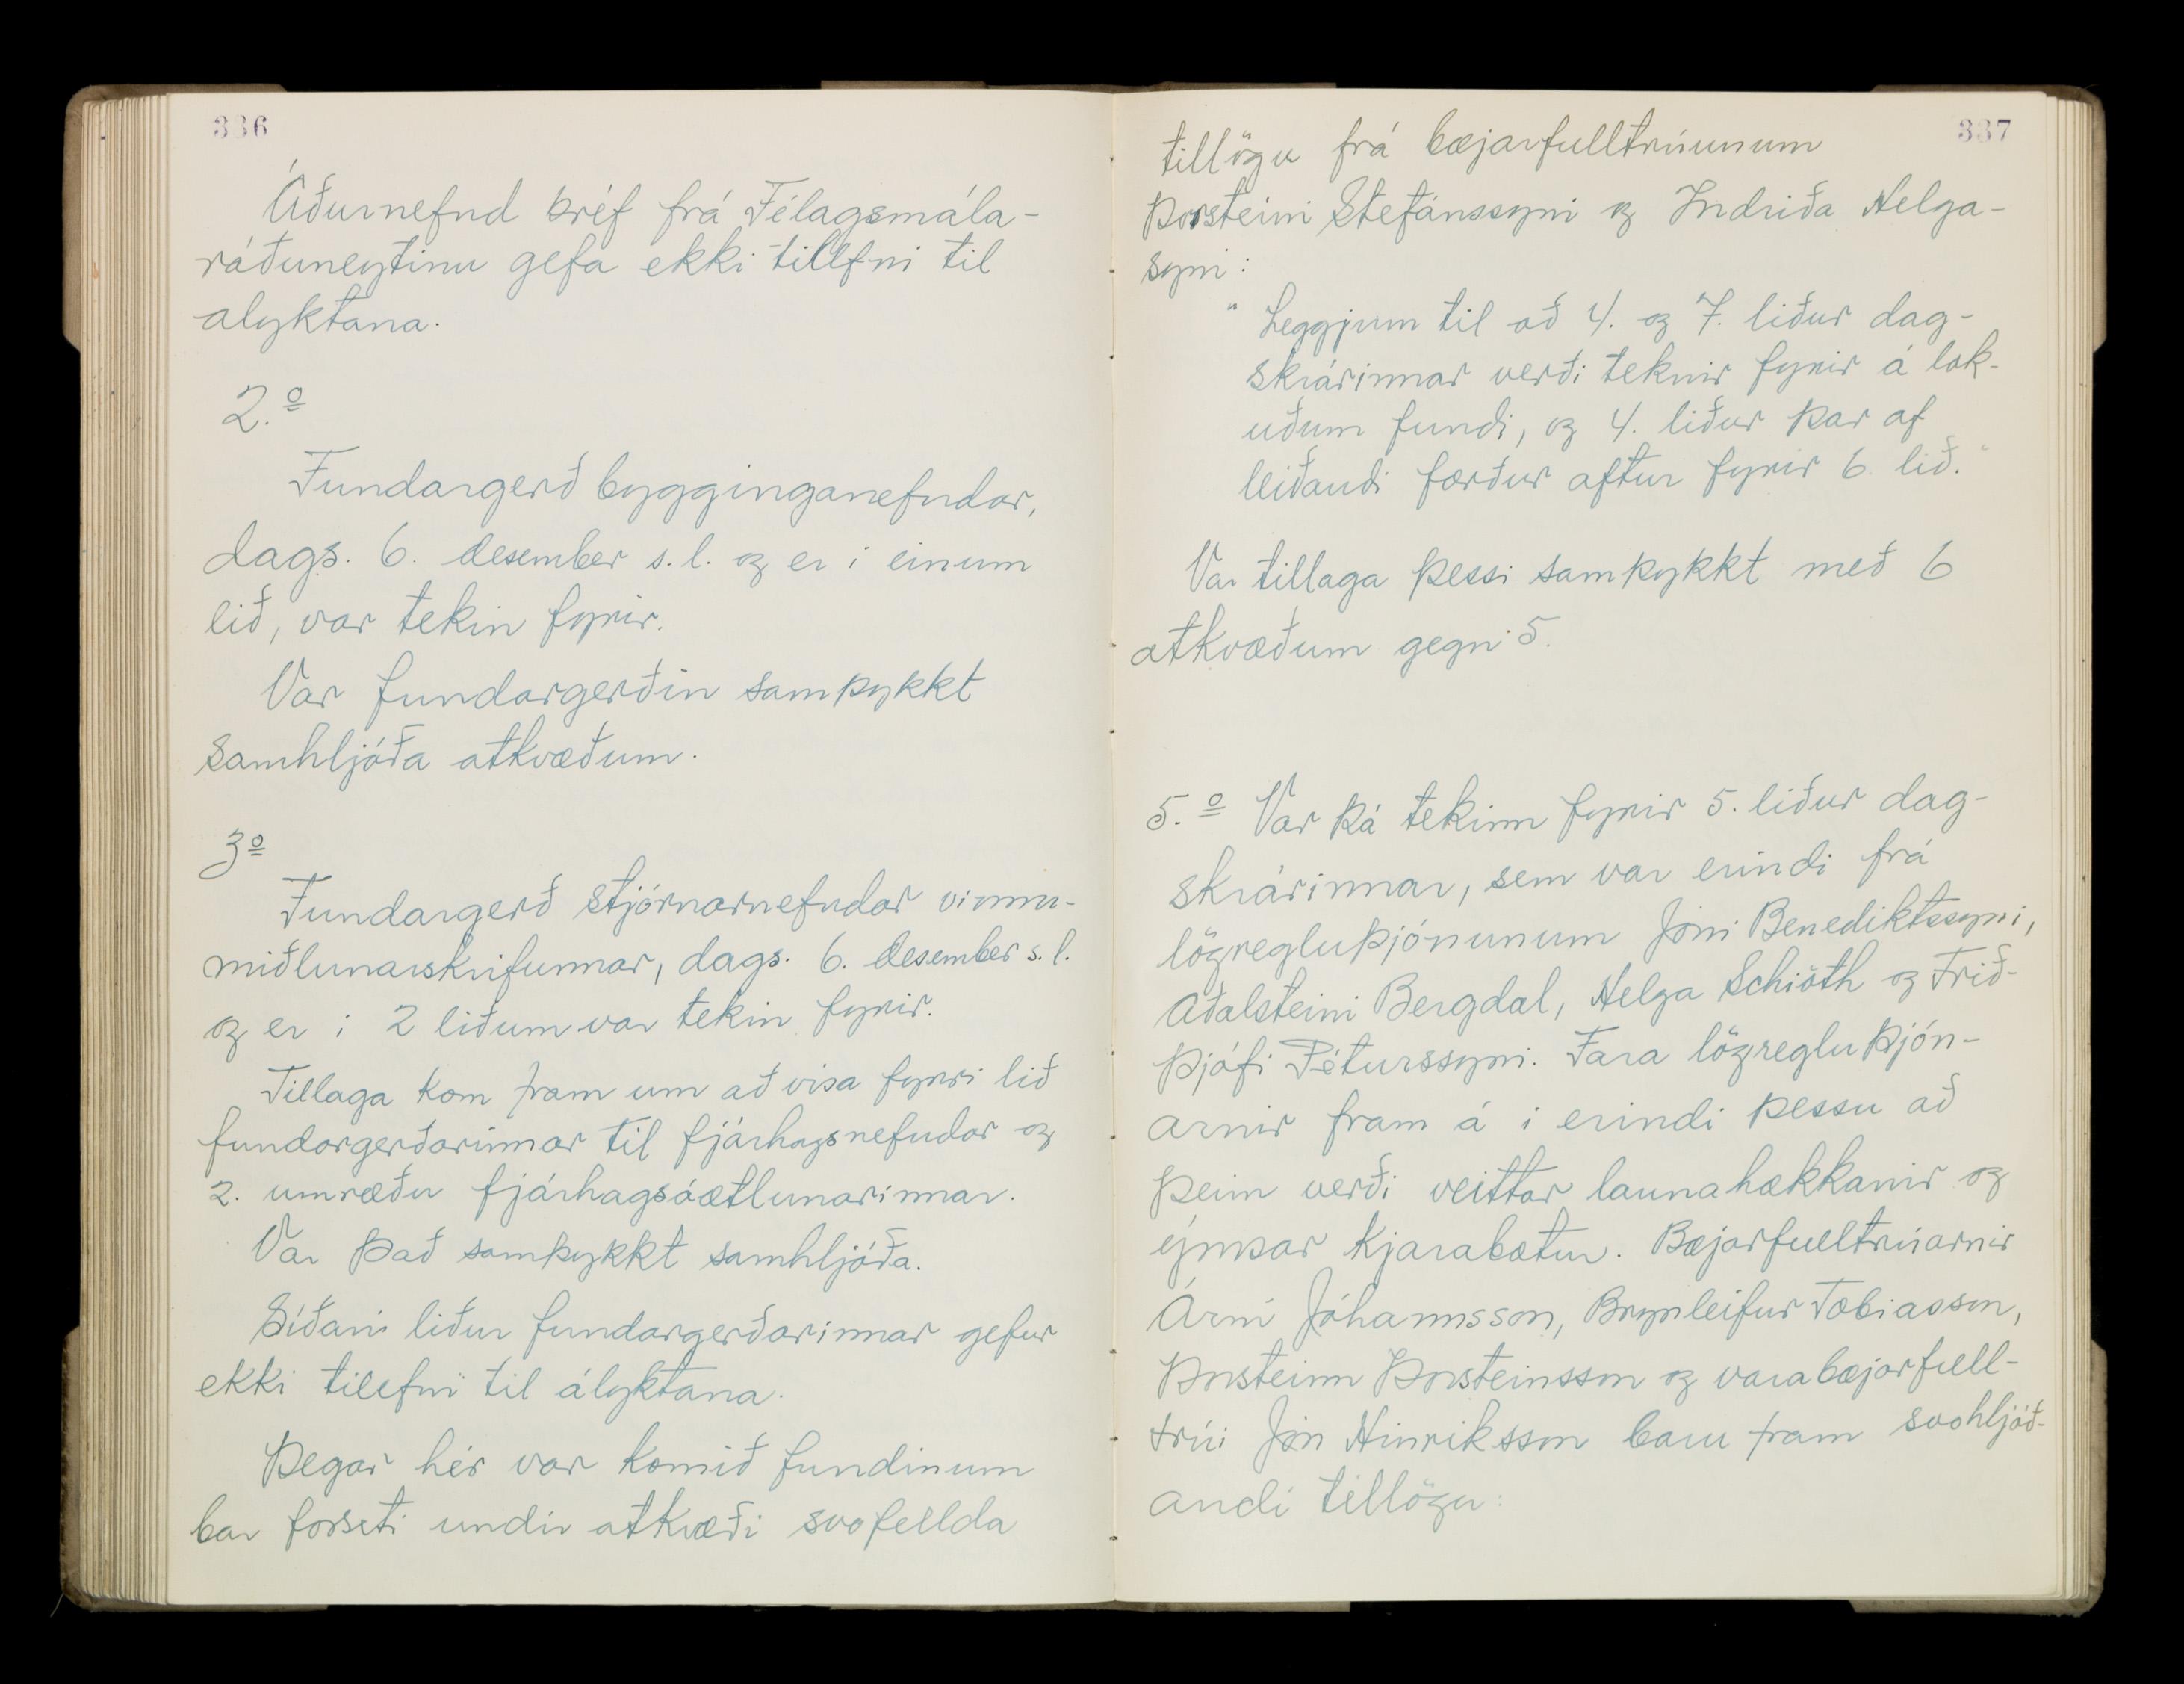 336
Áðurnefnd bréf frá Félagsmála-
ráðuneytinu gefa ekki tillfni til
alyktana.
2.º
Fundargerð bygginganefndar,
dags. 6. desember s.l. og er í einum
lið, var tekin fyrir.
Var fundargerðin samþykkt
samhljóða atkvæðum.
3º
Fundargerð stjórnarnefndar vinnu-
miðlunarskrifunnar, dags. 6. desember s.l.
og er í 2 liðum var tekin fyrir.
Tillaga kom fram um að vísa fyrri lið
fundargerðarinnar til fjárhagsnefndar og
2. umræðu fjárhagsáætlunarinnar.
Var það samþykkt samhljóða.
Síðari liður fundargerðarinnar gefur
ekki tilefni til ályktana.
Þegar hér var komið fundinum
bar forseti undir atkvæði svofellda
337
tillögu frá bæjarfulltrúunum
Þorsteini Stefánssyni og Indriða Helga-
syni:
" Leggjum til að 4. og 7. liður dag-
skrárinnar verði teknir fyrir á lok-
uðum fundi, og 4. liður þar af
leiðandi færður aftur fyrir 6 lið."
Var tillaga þessi samþykkt með 6
atkvæðum gegn 5.
5.º Var þá tekinn fyrir 5. liður dag-
skrárinnar, sem var erindi frá
lögregluþjónunum Jóni Benediktssyni,
Aðalsteini Bergdal, Helga Schiöth og Frið-
þjófi Péturssyni. Fara lögregluþjón-
arnir fram á í erindi þessu að
þeim verði veittar launahækkanir og
ýmsar kjarabætur. Bæjarfulltrúarnir
Árni Jóhannsson, Brynleifur Tobiasson,
Þorsteinn Þorsteinsson og varabæjarfull-
trúi Jón Hinriksson báru fram svohljóð-
andi tillögu: